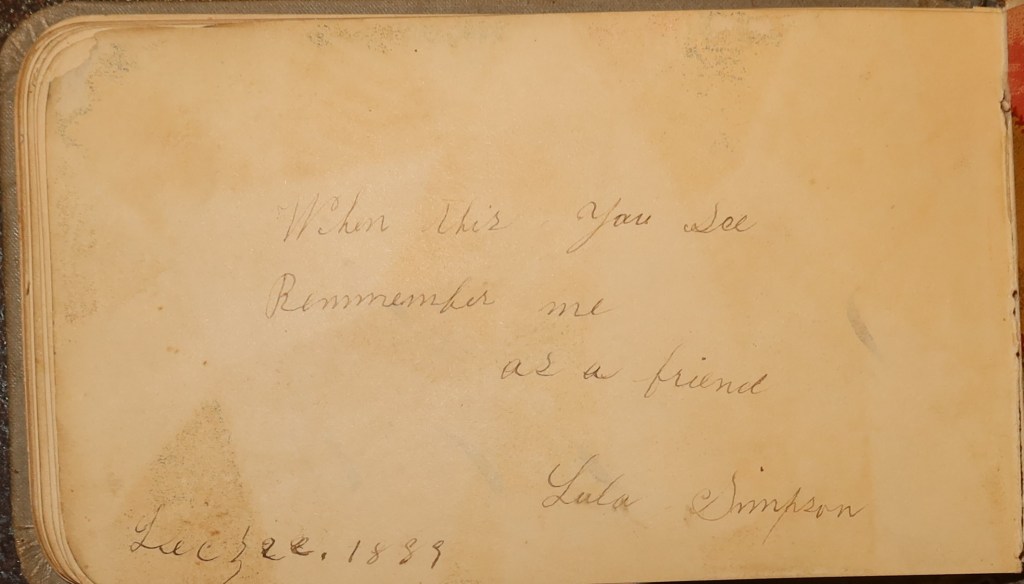 When this You See
Remmember me
as a friend
Lula Simpson
Dec 1889